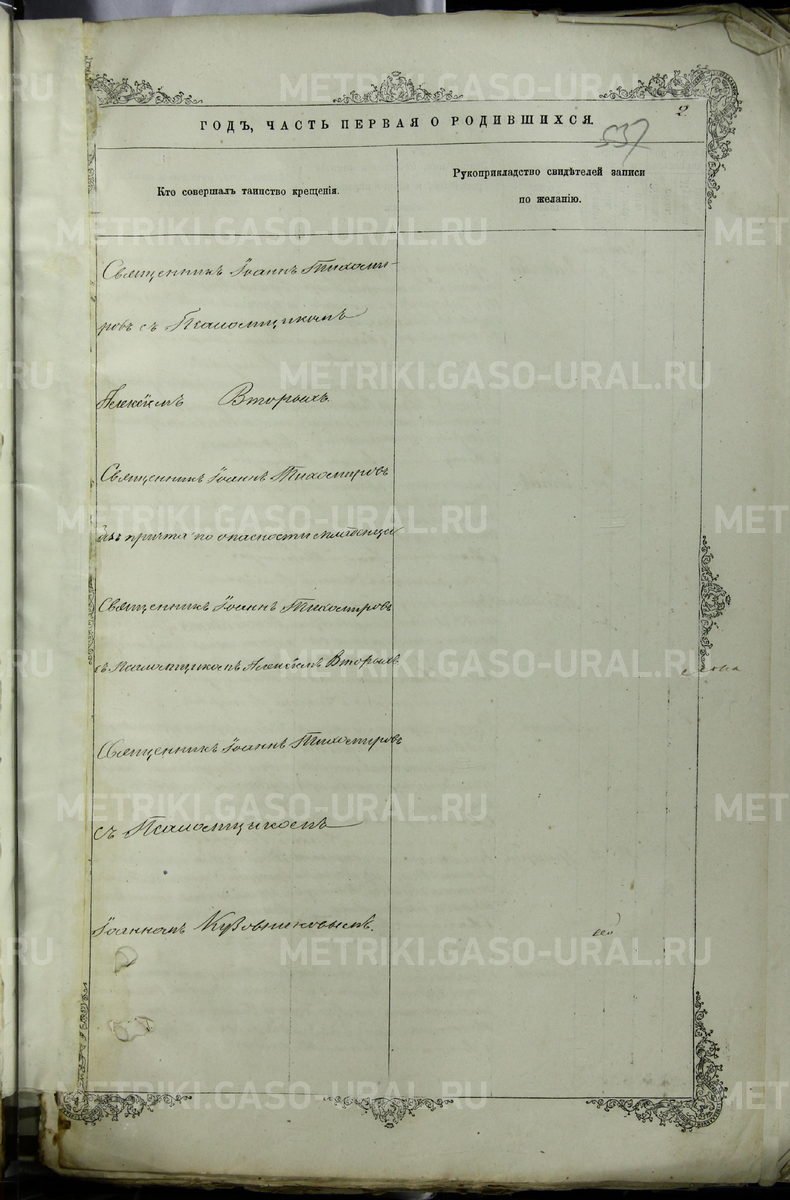 2
ГОДЪ, ЧАСТЬ ПЕРВАЯ О РОДИВШИХСЯ.
537
Кто совершалъ таинство крещенія.
Рукоприкладство свидѣтелей записи
по желанію.
Священникъ Іоаннъ Тихоми-
ровъ съ Псаломщикомъ
Алексѣемъ Вторыхъ.
Священникъ Іоаннъ Тихомировъ
безъ причта по опасности младенца
Священникъ Іоаннъ Тихомировъ
съ Псаломщикомъ Алексѣемъ Вторыхъ
Священникъ Іоаннъ Тихомировъ
съ Псаломщикомъ
Іоанномъ Кузовниковымъ.
METRIKI.GASO-URAL.RU